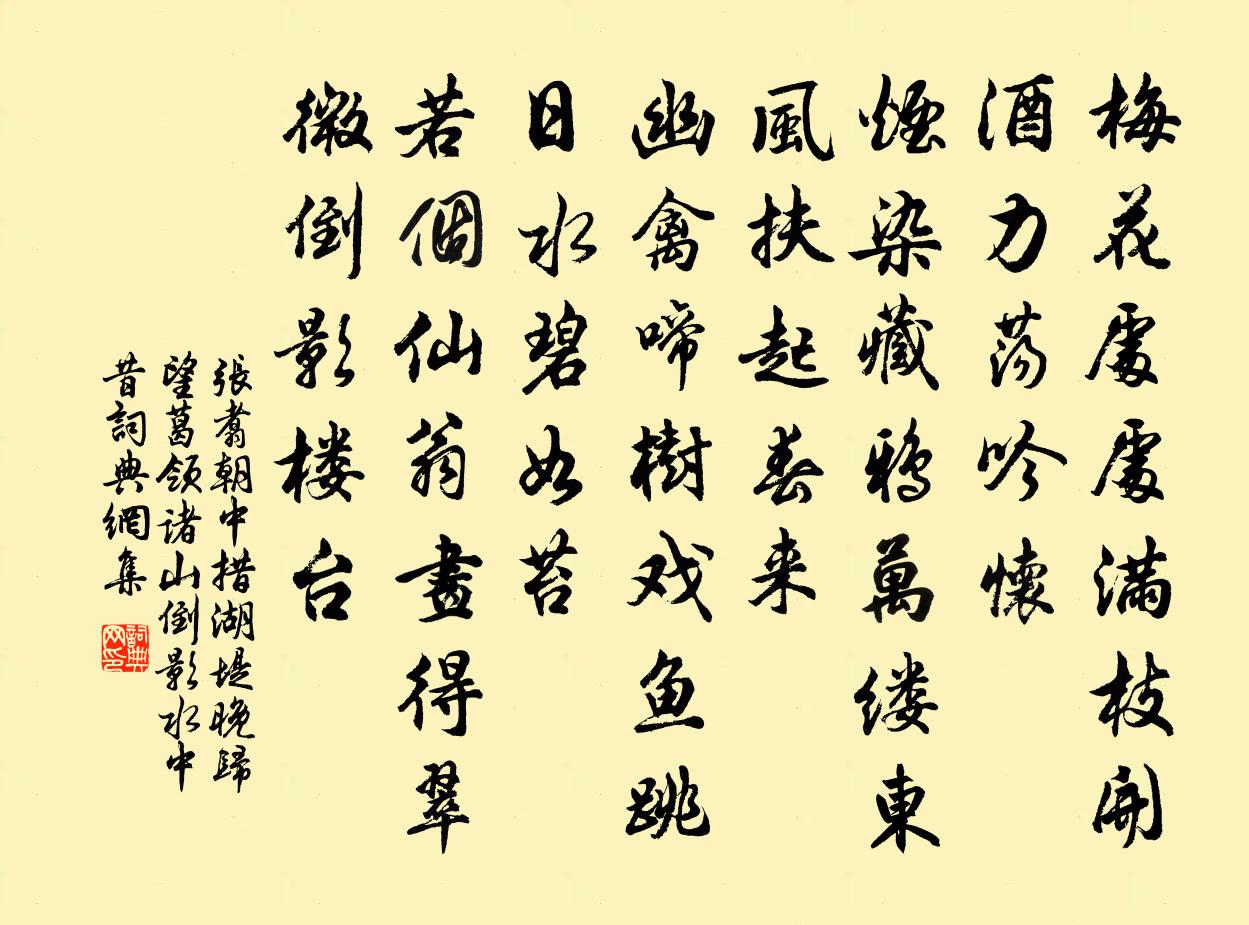 梅花處處滿枝開
酒力荡吟懷
煙染藏鸦萬缕東
風扶起春来
幽禽啼樹戏鱼跳
日水碧如苔
若個仙翁畫得翠
微倒影楼台
張翥朝中措湖堤晚歸
望葛领诸山倒影水中
昔詞典網集
詞典
网印